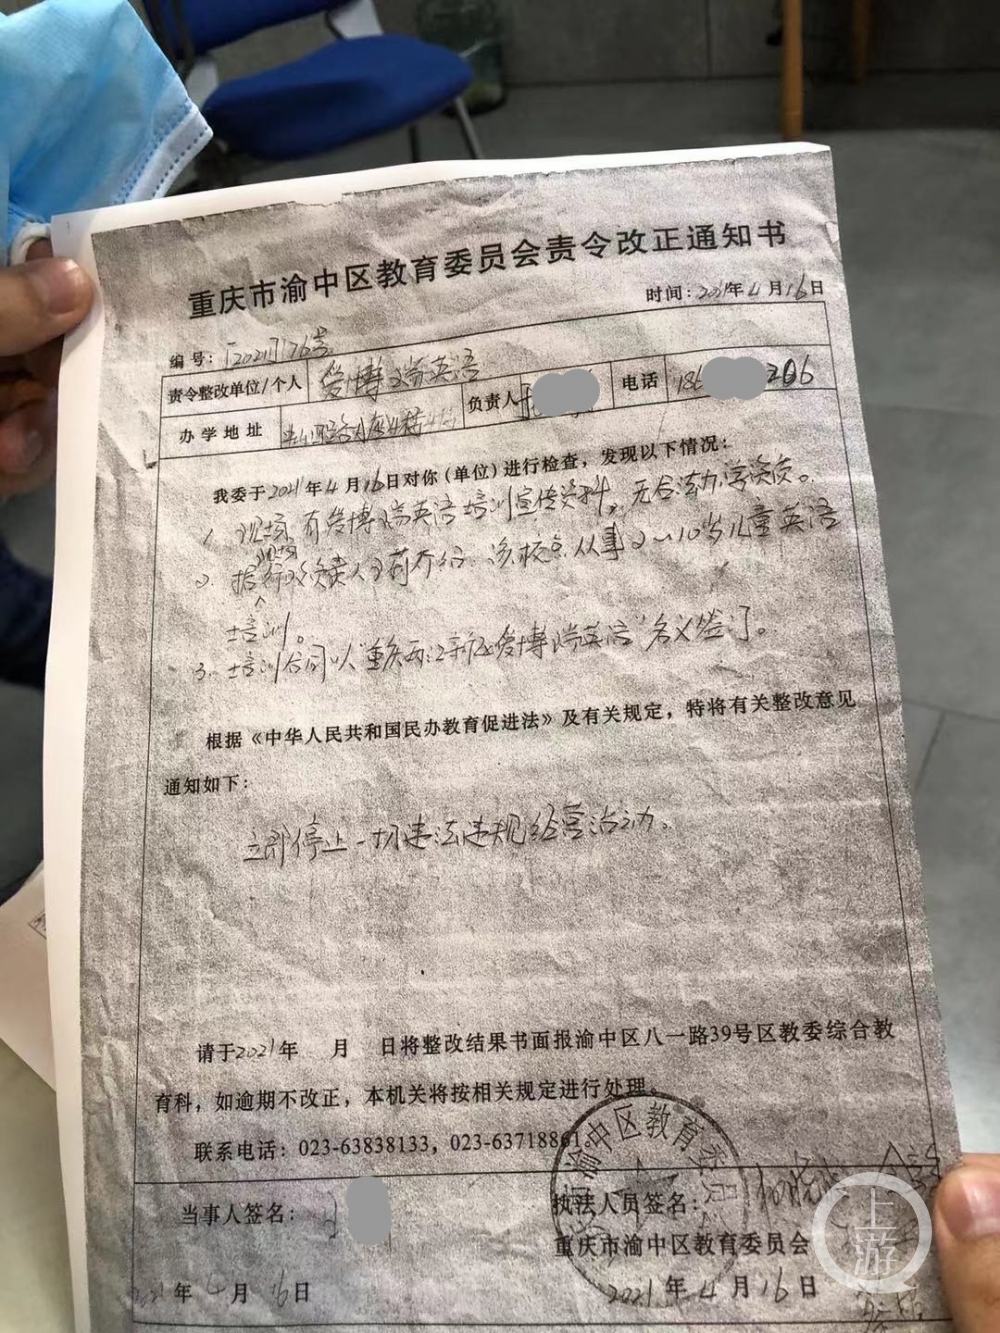 重庆市渝中区教育委员会责令改正通知书
时间:2021年4月16日
编号:[2021]176号
责令整改单位/个人 爱博瑞英语 负责人 电话 186 206
办学地址
我委于2021年4月16日对你(单位)进行检查,发现以下情况:
1. 现场有爱博瑞英语培训宣传资料,无合法办学资质。
2. 据现场负责人 介绍:该校点从事2~10岁儿童英语
培训。
3. 培训合同以"重庆两江新区爱博瑞英语"名义签订。
根据《中华人民共和国民办教育促进法》及有关规定,特将有关整改意见
通知如下:
立即停止一切违法违规经营活动。
请于2021年 月 日将整改结果书面报渝中区八一路39号区教委综合教
育科,如逾期不改正,本机关将按相关规定进行处理。
联系电话:023-63838133,023-63718861
当事人签名: 执法人员签名:
重庆市渝中区教育委员会
2021年4月16日 2021年4月16日
市渝中区教育委员
上游